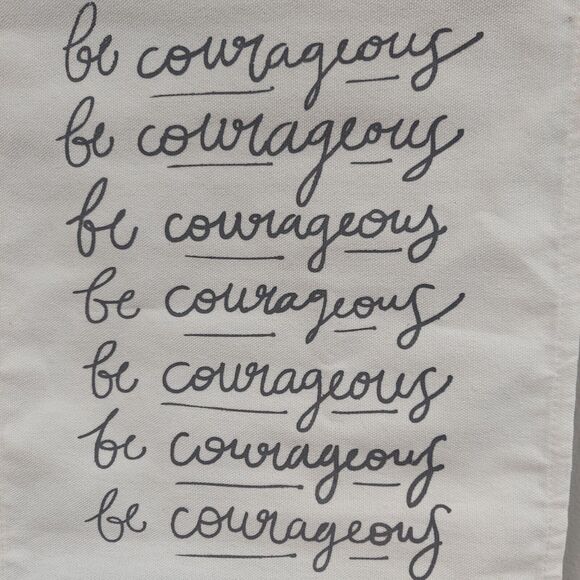 be courageous
be courageous
be courageous
be courageous
be courageous
be courageous
be courageous